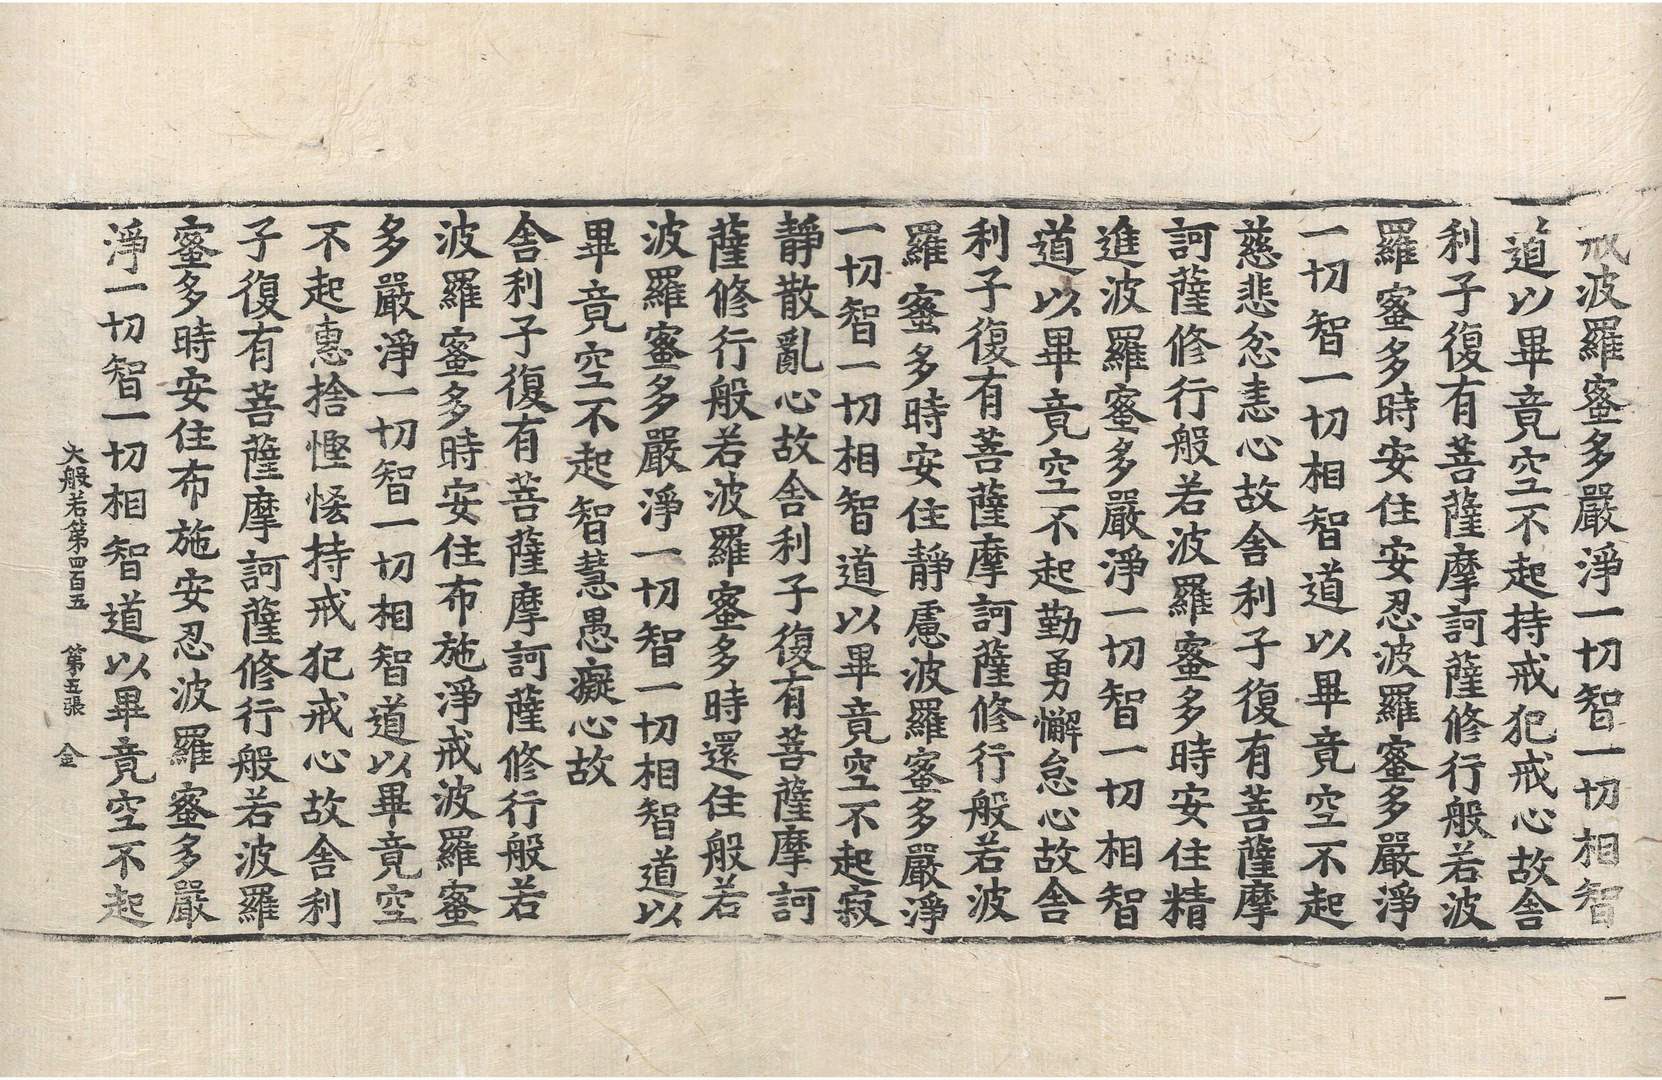 戒波羅蜜多嚴淨一切智一切相智
道以畢竟空不起持戒犯戒心故舍
利子復有菩薩摩訶薩修行般若波
羅蜜多時安住安忍波羅蜜多嚴淨
一切智一切相智道以畢竟空不起
慈悲忿恚心故舍利子復有菩薩摩
訶薩修行般若波羅蜜多時安住精
進波羅蜜多嚴淨一切智一切相智
道以畢竟空不起勤勇懈怠心故舍
利子復有菩薩摩訶薩修行般若波
羅蜜多時安住靜慮波羅蜜多嚴淨
一切智一切相智道以畢竟空不起寂
靜散亂心故舍利子復有菩薩摩訶
薩修行般若波羅蜜多時還住般若
波羅蜜多嚴淨一切智一切相智道以
畢竟空不起智慧愚癡心故
舍利子復有菩薩摩訶薩修行般若
波羅蜜多時安住布施淨戒波羅蜜
多嚴淨一切智一切相智道以畢竟空
不起惠捨慳悋持戒犯戒心故舍利
子復有菩薩摩訶薩修行般若波羅
蜜多時安住布施安忍波羅蜜多嚴
淨一切智一切相智道以畢竟空不起
大般若第四百五 第五張 金